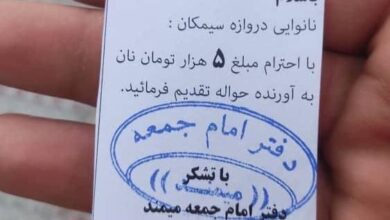 باسلام
نانوایی دروازه سیمکان :
با احترام مبلغ ۵ هزار تومان نان
به آورنده حواله تقدیم فرمائید.
دفتر امام جمعه
با تشکر
((میمند))
دفتر امام جمعه میمند